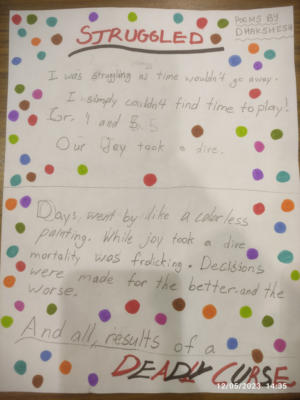 STRUGGLED
POEMS BY
DHAKSHESH
I was struggling as time wouldn't go away.
I simply couldn't find time to play!
Gr. 4 and 5
Our Joy took a dive.
Days, went by like a colorless
painting. While joy took a dive
mortality was frolicking. Decisions
were made for the better and the
worse.
And all, results of a
DEADLY CURSE
12/05/2023 14:35